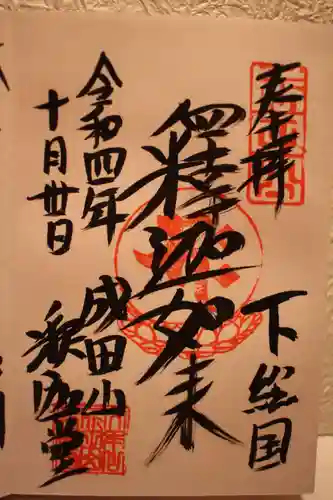 奉拝
下総国
釋迦如来
令和四年
十月廿日
成田山
釈迦堂